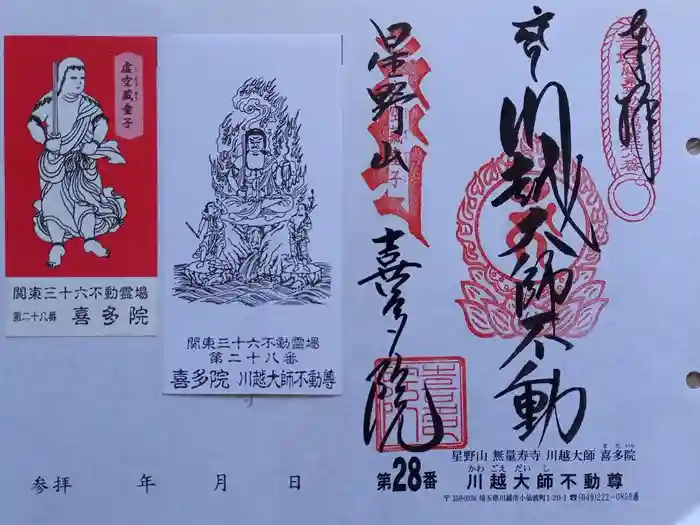 奉拝
川越大師不動
星野山
喜多院
虚空蔵童子
関東三十六不動霊場
第二十八番 喜多院
関東三十六不動霊場
第二十八番
喜多院 川越大師不動尊
星野山 無量寿寺 川越大師 喜多院
きたいん
かわごえだいし
第28番 川越大師不動尊
〒350-0036 埼玉県川越市小仙波町1-20-1 ☎(049)222-0859番
参拝 年 月 日